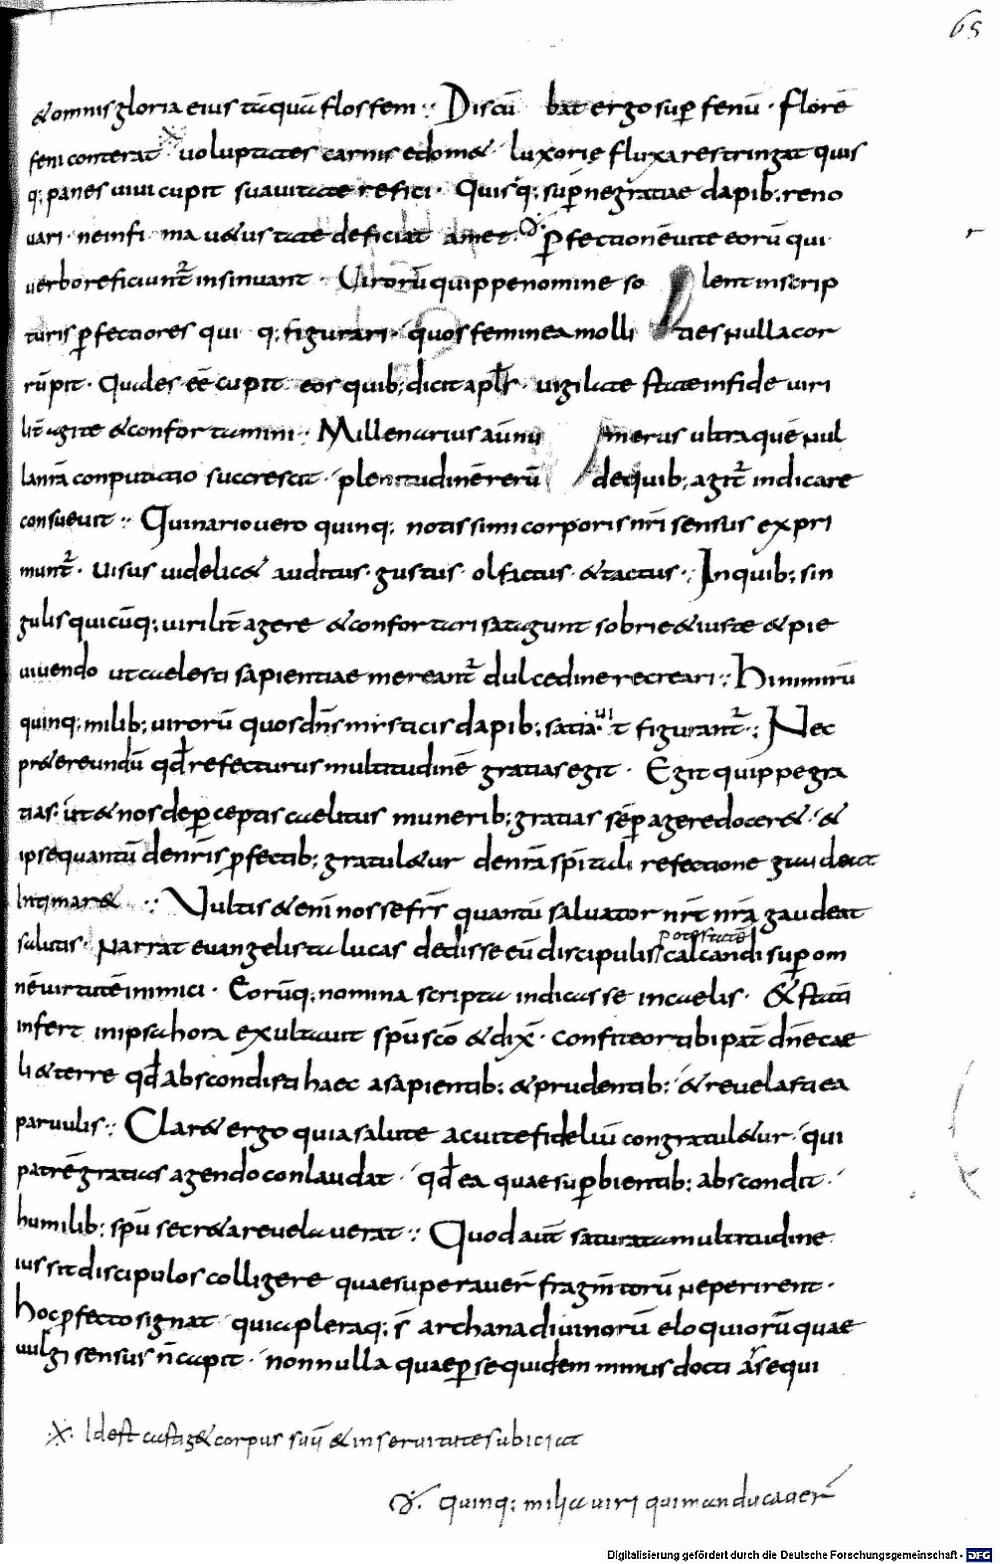 65
&omnis gloria eius tāquā flos feni ·: Discū bat ergo suꝑ fenū · florē
feni conterat · voluptates carnis edom& · luxorie fluxa restringat quis
q; panes vivi cupit suavitate refici · Quisq; suꝑne gratiae dapib; reno
vari · ne infi ma v&ustate deficiat am&· ꝑfectionē vite eorū qui
verbo reficiunt᷑ insinuant · Virorū quippe nomine so lent in scrip
turis ꝑfectiores qui q; figurari · quos feminea molli ties nulla cor
rūpit · Quales eē cupit eos quib; dicit apłs · vigilate state in fide viri
lit̄ agite &confortamini ·: Millenarius aū nu merus ultra quē nul
la nr̄a conputatio succrescit · plenitudinē rerū de quib; agit᷑ indicare
consuevit ·: Quinario vero quinq; notissimi corporis nr̄i sensus expri
munt᷑ · visus videlic& auditus · gustus · olfactus · &tactus ·: In quib; sin
gulis quicūq; virilit̄ agere &confortari satagunt sobrie &iuste &pie
vivendo ut caelesti sapientiae mereant᷑ dulcedine recreari ·: Hi nimirū
quinq; milib; virorū quos dn̄s misticis dapib; satia vi t figurant᷑ ·: Nec
pr&ereundū qd̄ refecturus multitudinē gratias egit · Egit quippe gra
tias · ut &nos de ꝑceptis caelitus munerib; gratias sēꝑ agere docer& · &
ipse quantū de nr̄is ꝑfectib; gratul&ur de nr̄a spi tali refectione gaudeat
Intimar& ·: Vultis &eni nosse fr̄s quantū salvator nr̄t nr̄a gaudeat
salutis · Narrat evangelista lucas dedisse eū discipulis potestatē calcandi suꝑ om
nē virtutē inimici · Eorūq; nomina scripta indicasse in caelis · &statī
infert in ipsa hora exultavit spū scō &dix̄ · Confiteor tibi pat̄ dn̄e cae
li &terre qd̄ abscondisti haec a sapientib; &prudentib; · &revelasti ea
parvulis ·: Clar& ergo quia salute ac vite fideliū congratul&ur · qui
patrē gratias agendo conlaudat · qd̄ ea quae suꝑbientib; abscondit ·
humilib; spū secr&a revelaverat ·: Quod aūt saturata multitudine
iussit discipulos colligere quae superaver̄ fragm̄torū ne perirent ·
hoc ꝓfecto signat quia pleraq; s̄ archana divinorū eloquiorū quae
vulgi sensus n̄ capit · nonnulla quae ꝑ se quidem minus docti assequi
·x· Id est castig& corpus suū &in servitute subiciat
quinq; milia viri qui manducaver̄
Digitalisierung gefördert durch die Deutsche Forschungsgemeinschaft - DFG